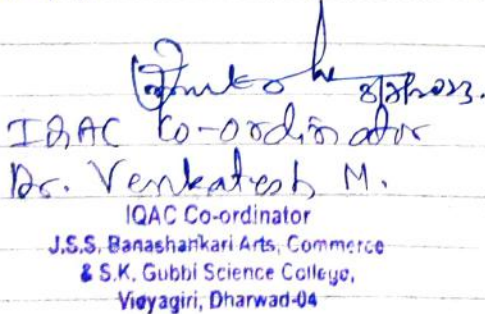 8/3/2023.
IQAC Co-ordinator
Dr. Venkatesh M.
IQAC Co-ordinator
J.S.S. Banashankari Arts, Commerce
& S.K. Gubbi Science College,
Vidyagiri, Dharwad-04